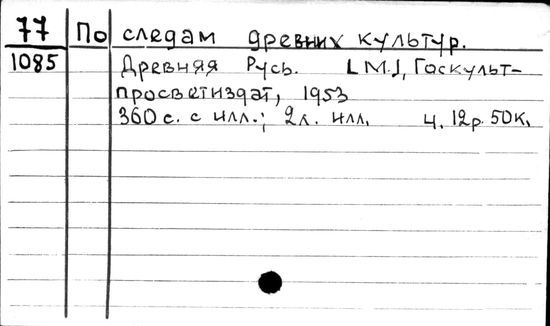 77 По следам древних культур.
1085 Древняя Русь. [М.], Госкульт-
просветиздат, 1953
360 с. с илл.; 2л. илл. ц. 12р. 50к.